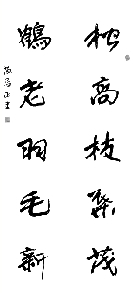 松高枝叶茂
鶴老羽毛新